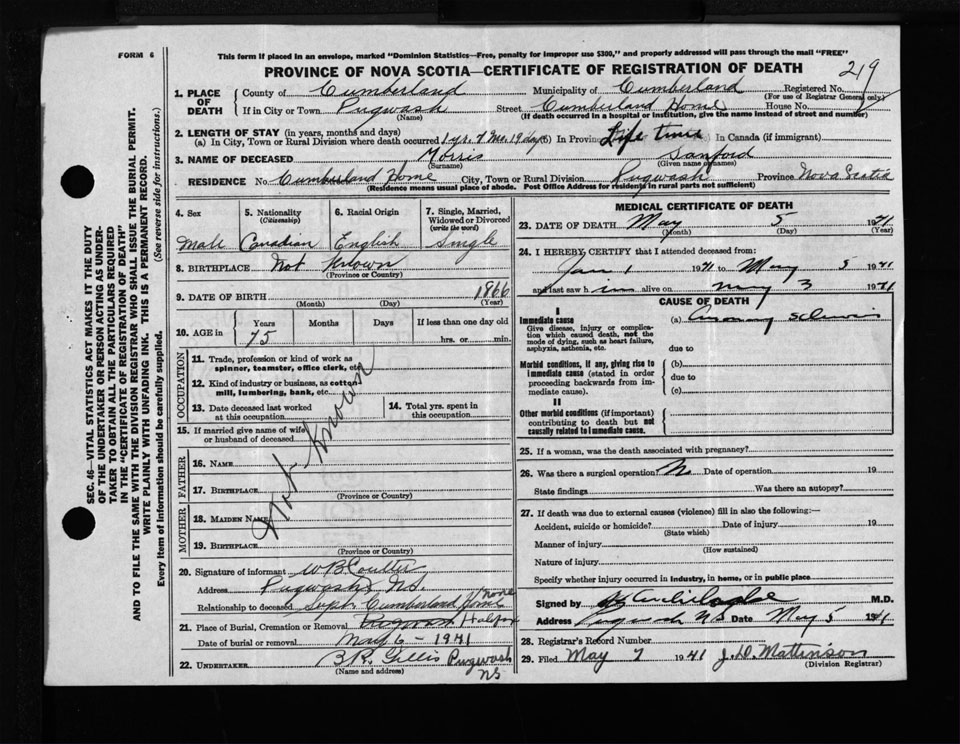 FORM 6
This form if placed in an envelope, marked "Dominion Statistics—Free, penalty for improper use $300," and properly addressed will pass through the mail "FREE"
PROVINCE OF NOVA SCOTIA—CERTIFICATE OF REGISTRATION OF DEATH
219
SEC. 46—VITAL STATISTICS ACT MAKES IT THE DUTY
OF THE UNDERTAKER OR PERSON ACTING AS UNDER-
TAKER TO OBTAIN ALL THE PARTICULARS REQUIRED
IN THE "CERTIFICATE OF REGISTRATION OF DEATH"
AND TO FILE THE SAME WITH THE DIVISION REGISTRAR WHO SHALL ISSUE THE BURIAL PERMIT.
WRITE PLAINLY WITH UNFADING INK. THIS IS A PERMANENT RECORD.
Every item of information should be carefully supplied. (See reverse side for instructions.)
1. PLACE OF DEATH
County of Cumberland Municipality of Cumberland Registered No.
(For use of Registrar General only)
If in City or Town Pugwash Street Cumberland Home House No.
(Name) (If death occurred in a hospital or institution, give the name instead of street and number)
2. LENGTH OF STAY (in years, months and days)
(a) In City, Town or Rural Division where death occurred 1 yr. 7 Mo. 19 days In Province Life time In Canada (if immigrant)
3. NAME OF DECEASED Morris Sanford
(Surname) (Given name or names)
RESIDENCE No. Cumberland Home City, Town or Rural Division Pugwash Province Nova Scotia
(Residence means usual place of abode. Post Office Address for residents in rural parts not sufficient)
4. Sex
Male
5. Nationality
(Citizenship)
Canadian
6. Racial Origin
English
7. Single, Married, Widowed or Divorced
(write the word)
Single
8. BIRTHPLACE Not Known
(Province or Country)
9. DATE OF BIRTH 1866
(Month) (Day) (Year)
10. AGE in Years Months Days If less than one day old
75 hrs. or min.
OCCUPATION
11. Trade, profession or kind of work as
spinner, teamster, office clerk, etc
12. Kind of industry or business, as cotton
mill, lumbering, bank, etc
13. Date deceased last worked
at this occupation
14. Total yrs. spent in
this occupation
15. If married give name of wife
or husband of deceased
Not Known
FATHER
16. NAME
17. BIRTHPLACE
(Province or Country)
MOTHER
18. MAIDEN NAME
19. BIRTHPLACE
(Province or Country)
20. Signature of informant W B Coulter
Address Pugwash NS.
Relationship to deceased Supt. Cumberland Home none
21. Place of Burial, Cremation or Removal Pugwash Halifax
Date of burial or removal May 6 - 1941
22. UNDERTAKER B R. Gillis Pugwash NS
(Name and address)
MEDICAL CERTIFICATE OF DEATH
23. DATE OF DEATH May 5 1941
(Month) (Day) (Year)
24. I HEREBY CERTIFY that I attended deceased from:
Jan 1 1941 to May 5 1941
and last saw him alive on May 3 1941
CAUSE OF DEATH
I
Immediate cause
Give disease, injury or complica-
tion which caused death, not the
mode of dying, such as heart failure,
asphyxia, asthenia, etc.
(a)
due to
Morbid conditions, if any, giving rise to
immediate cause (stated in order
proceeding backwards from im-
mediate cause).
(b)
due to
(c)
II
Other morbid conditions (if important)
contributing to death but not
causally related to immediate cause.
25. If a woman, was the death associated with pregnancy?
26. Was there a surgical operation? N Date of operation 19
State findings Was there an autopsy?
27. If death was due to external causes (violence) fill in also the following:—
Accident, suicide or homicide? Date of injury 19
(State which)
Manner of injury
(How sustained)
Nature of injury
Specify whether injury occurred in industry, in home, or in public place
Signed by M.D.
Address Pugwash NS Date May 5 1941
28. Registrar's Record Number
29. Filed May 7 1941 J. D. Mattinson
(Division Registrar)